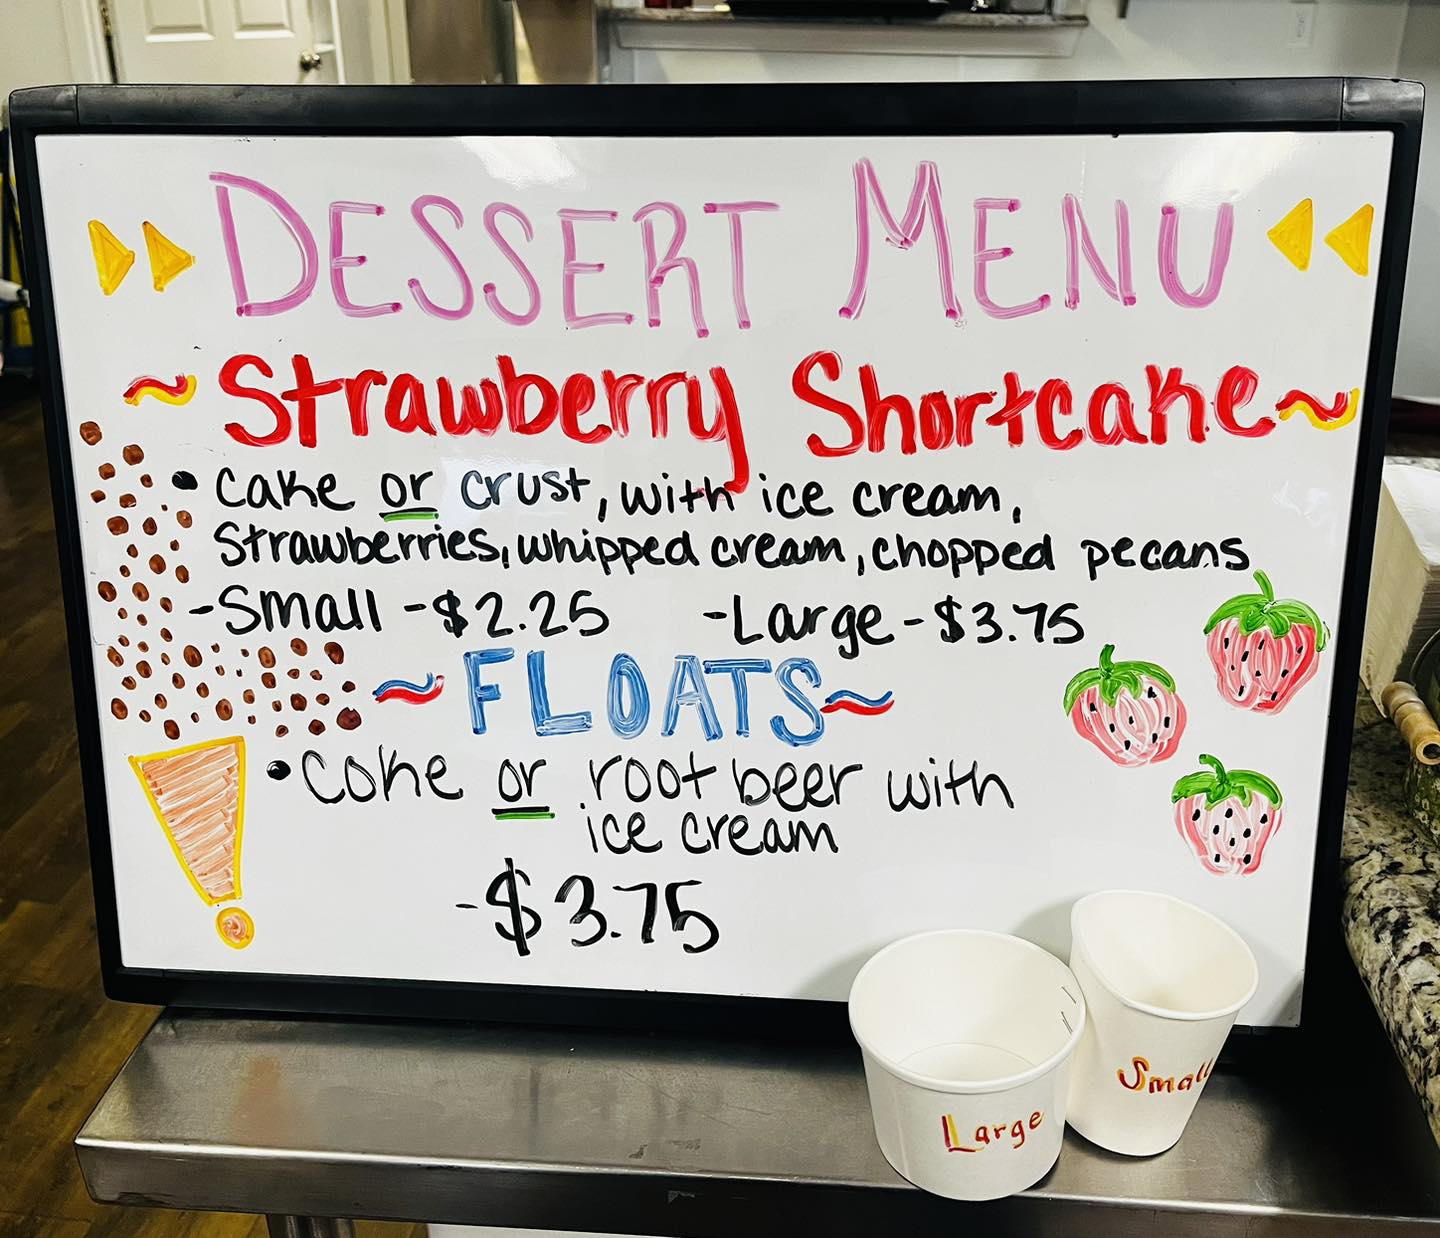 DESSERT MENU
~Strawberry Shortcake~
• Cake or crust, with ice cream,
Strawberries, whipped cream, chopped pecans
-Small -$2.25 -Large-$3.75
~FLOATS~
• Coke or root beer with
ice cream
-$3.75
Large
Small